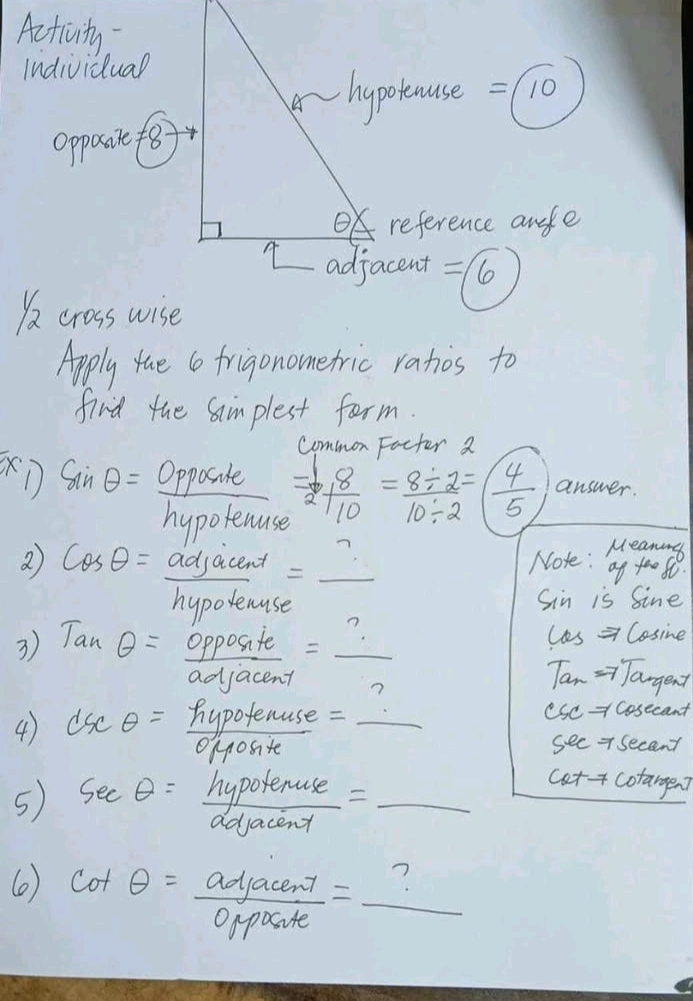 Activity -
Individual
hypotenuse = 10
Opposite = 8
θ reference angle
adjacent = 6
1/2 cross wise
Apply the 6 trigonometric ratios to
find the simplest form.
Common Factor 2
Ex. 1) Sin θ = Opposite / hypotenuse = 2 8/10 = 8÷2 / 10÷2 = 4/5 answer.
2) Cos θ = adjacent / hypotenuse = ?
3) Tan θ = opposite / adjacent = ?
4) csc θ = hypotenuse / Opposite = ?
5) Sec θ = hypotenuse / adjacent =
6) Cot θ = adjacent / Opposite = ?
Note: Meaning
of the
Sin is Sine
Cos → Cosine
Tan → Tangent
csc → Cosecant
sec → secant
Cot → cotangent